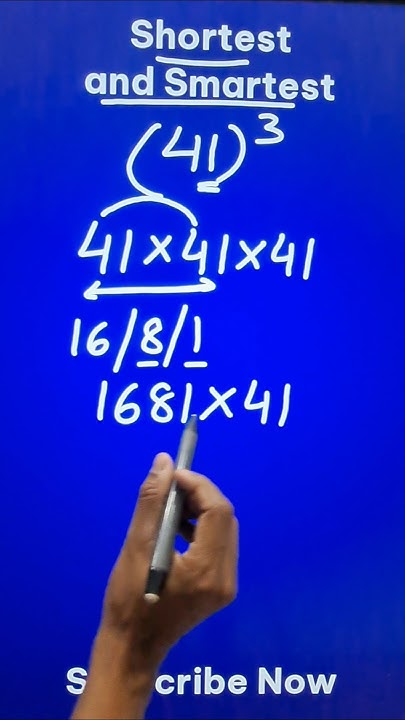 Shortest
and Smartest
(41)³
41×41×41
16/8/1
1681×41
S cribe Now